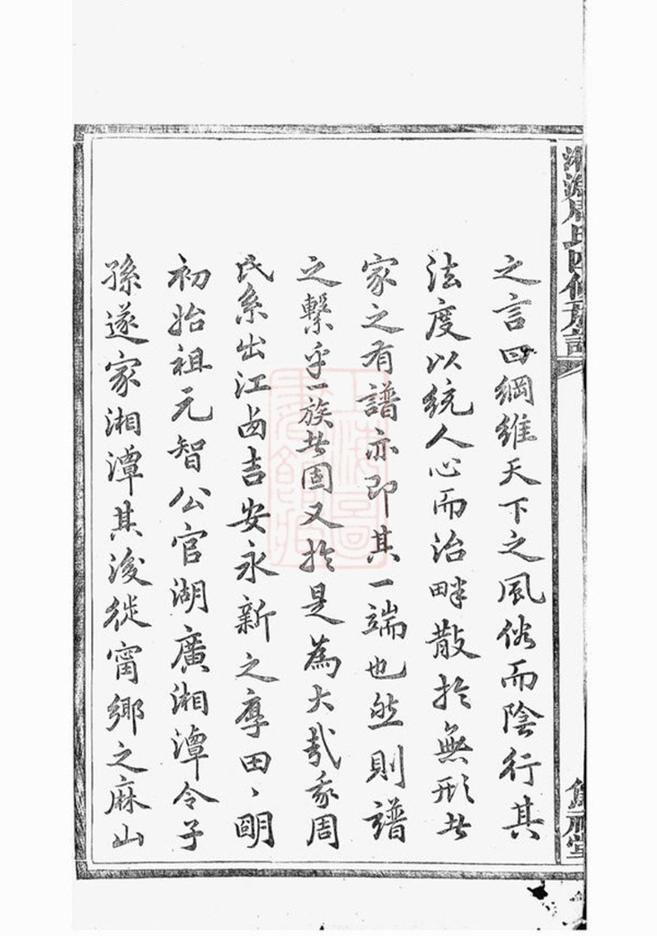 周氏四修房譜
之言曰綱維天下之風俗而陰行其
法度以統人心而治畔散於無形者
家之有譜亦即其一端也然則譜
之繫乎一族者固又於是為大哉我周
氏系出江西吉安永新之厚田、明
初始祖元智公官湖廣湘潭令子
孫遂家湘潭其後徙甯鄉之麻山
上海圖書館藏